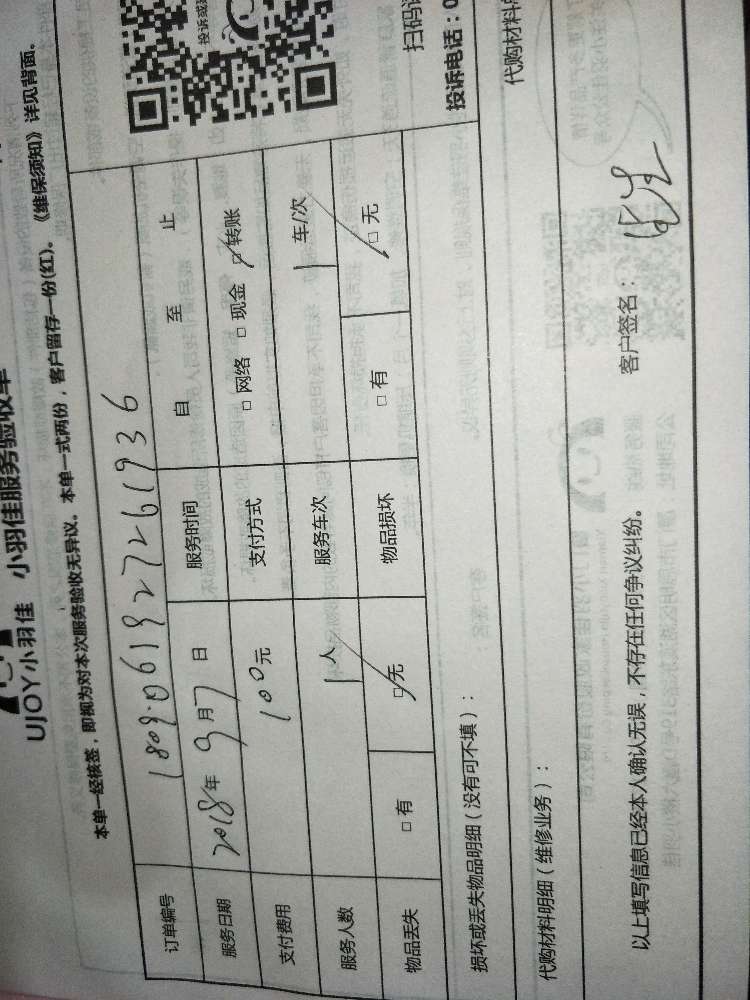 UJOY小羽佳 小羽佳服务验收单
本单一经核签，即视为对本次服务验收无异议。本单一式两份，客户留存一份(红)。《维保须知》详见背面。
订单编号 1809061927261936
服务日期 2018年9月7日 服务时间 自 至 止
支付费用 100元 支付方式 □ 网络 □ 现金 □ 转账
服务人数 1人 服务车次 1车/次
物品丢失 □ 有 □ 无 物品损坏 □ 有 □ 无
投诉或
扫码
损坏或丢失物品明细（没有可不填）： 投诉电话：0
代购材料明细（维修业务）： 代购材料
以上填写信息已经本人确认无误，不存在任何争议纠纷。 客户签名：